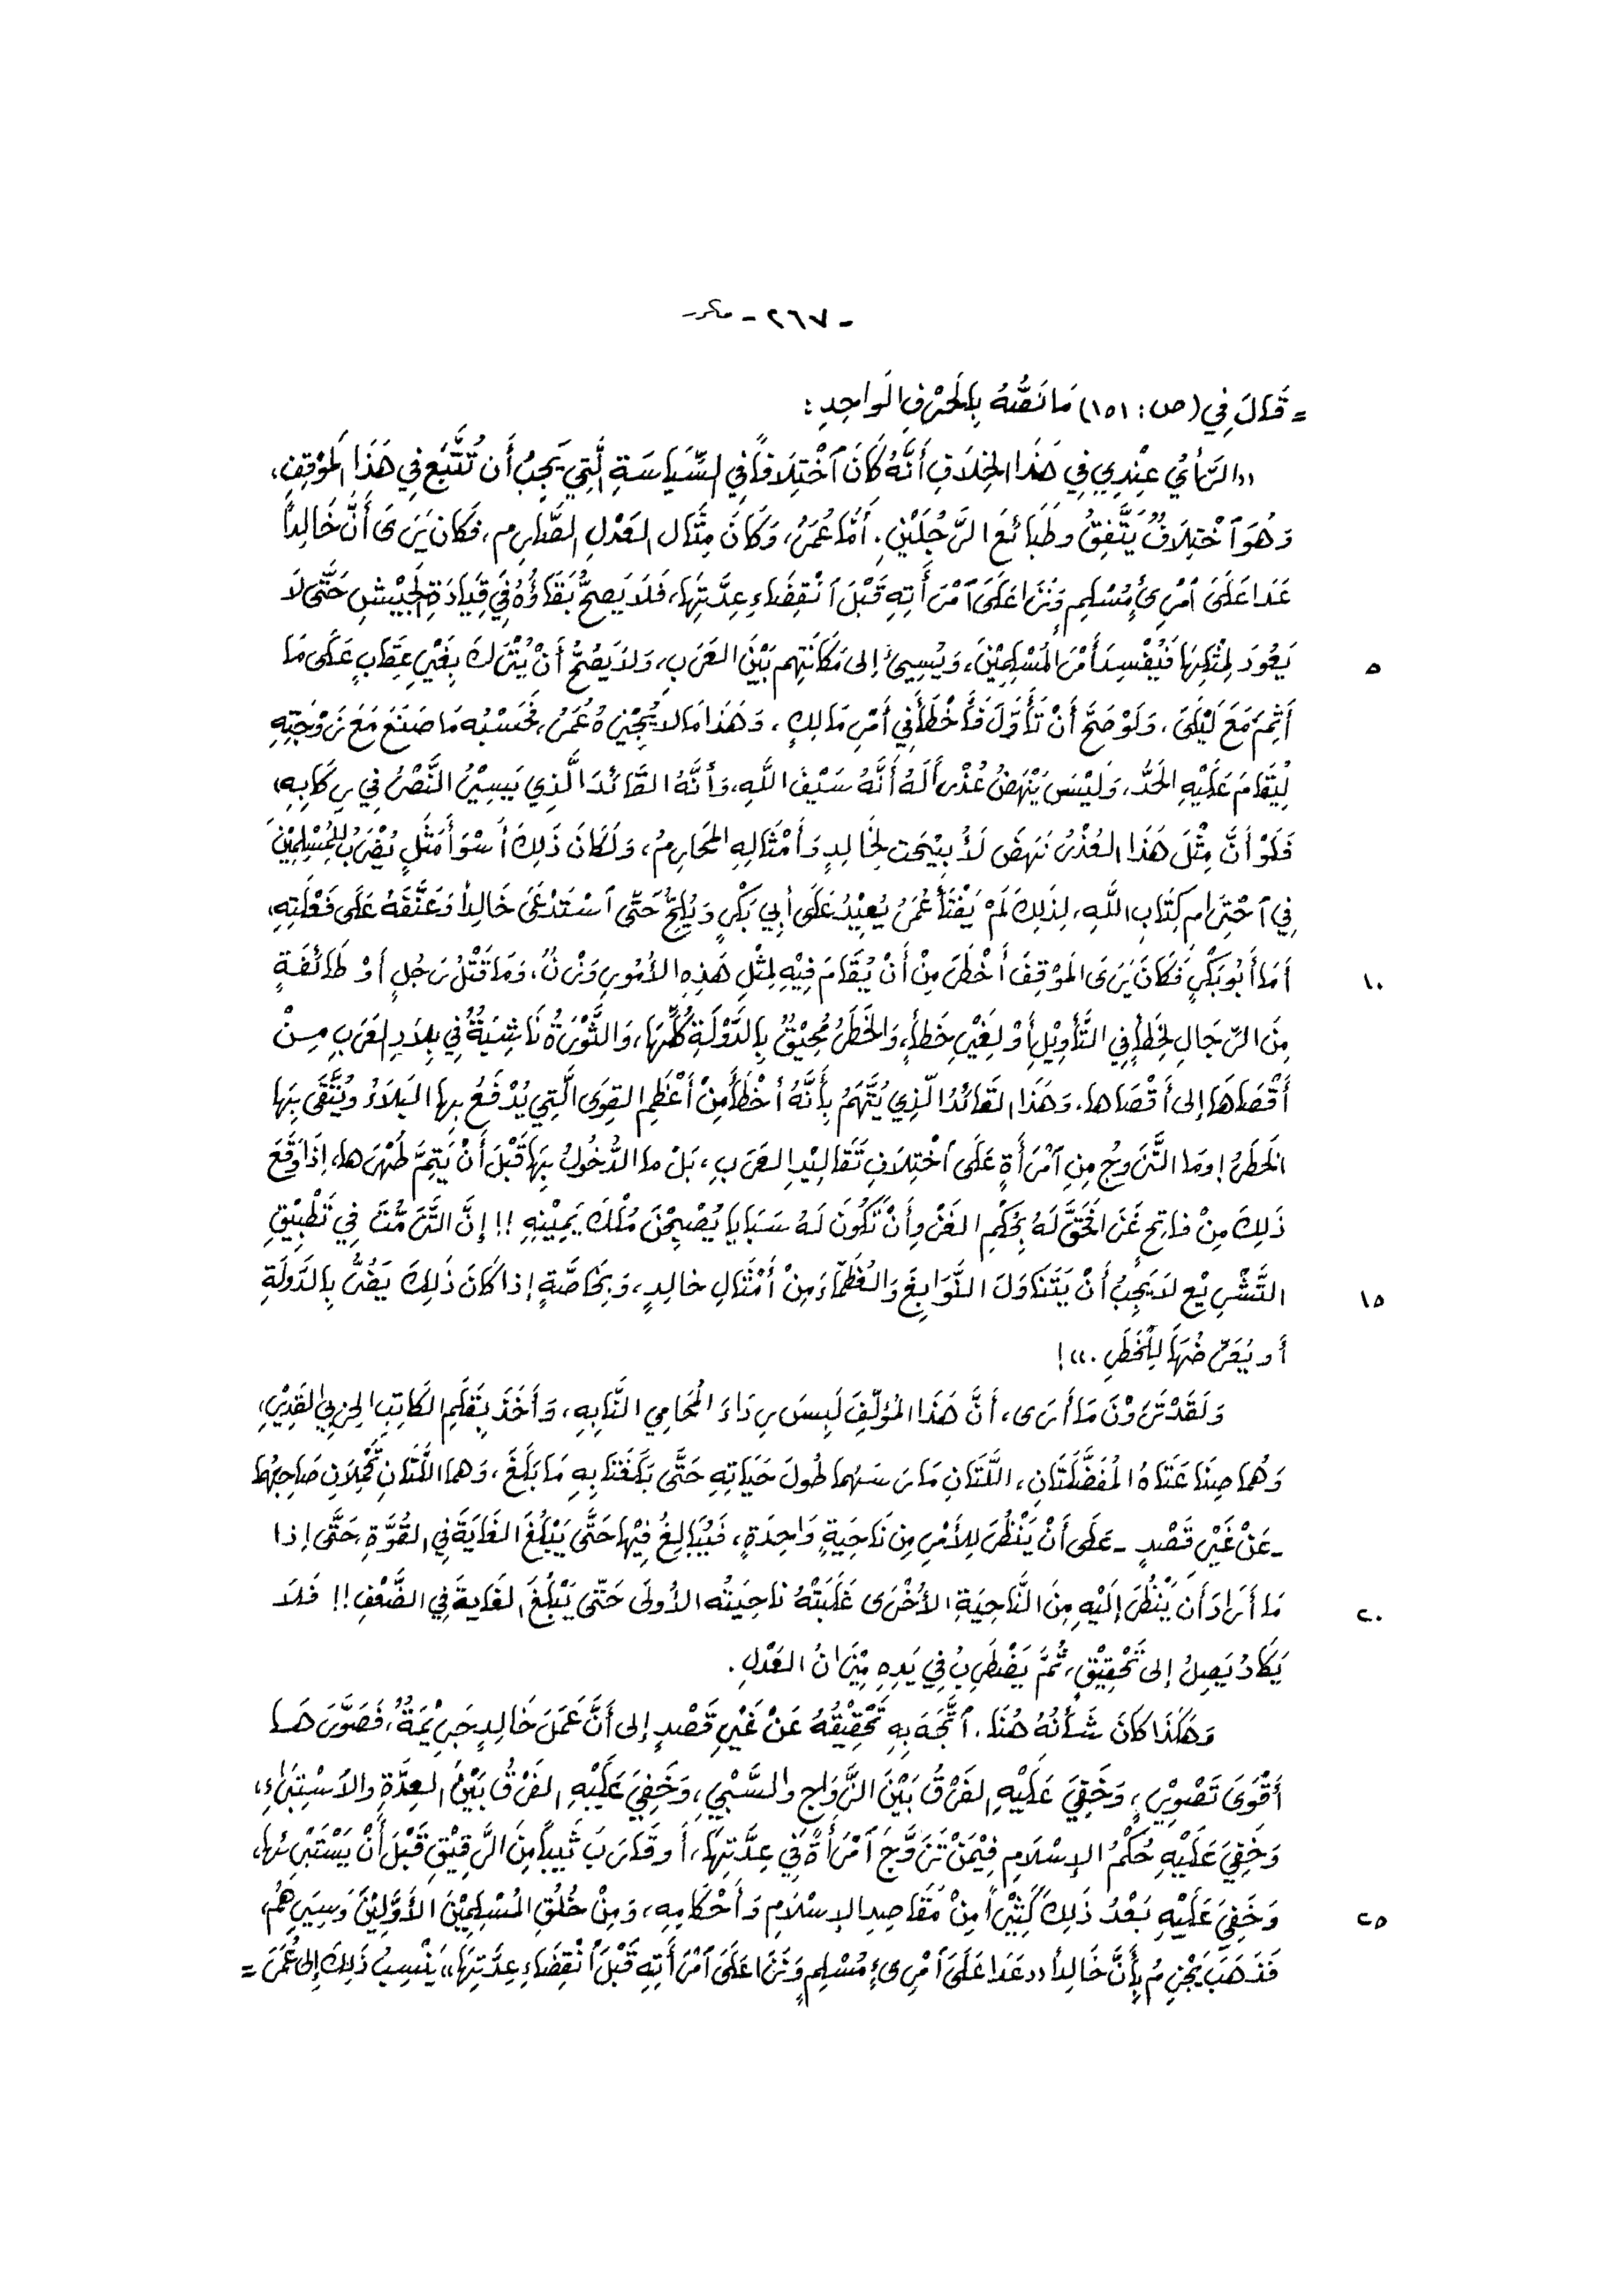 - ٢٦٧ - مكرر
= قَالَ فِي (ص: ١٥١) مَا نَصُّهُ بِالحَرْفِ الوَاحِدِ:
«الرَّأيُ عِنْدِي فِي هَذَا الخِلَافِ أَنَّهُ كَانَ ٱخْتِلَافًا فِي السِّيَاسَةِ الَّتِي يَجِبُ أَن تُتَّبَع فِي هَذَا المَوْقِفِ،
وَهُوَ ٱخْتِلَافٌ يَتَّفِقُ وطَبَائعَ الرَّجُلَيْنِ. أَمَّا عُمَرُ، وَكَانَ مِثَال العَدْلِ الصَّارِم، فَكَان يَرَى أَنَّ خَالِداً
عَدَا عَلَى ٱمْرِىءٍ مُسْلِمٍ وَنَزَا عَلَى ٱمْرَأَتِهِ قَبْلَ ٱنْقِضَاءِ عِدَّتِهَا، فَلَا يَصِحُّ بَقَاؤُهُ فِي قِيَادَةِ الجَيْشِ حَتَّى لَا
يَعُودَ لِمِثْلِهَا فَيُفْسِدَ أَمْرَ المُسْلِمِيْنَ، وَيُسِيئَ إلى مَكَانَتِهِم بَيْنَ العَرَبِ، وَلَا يَصِحُّ أَنْ يُتْرَكَ بِغَيْرِ عِقَابٍ عَلَى مَا ٥
أَثِمَ مَعَ لَيْلَى، وَلَوْ صَحَّ أَنْ تَأَوَّلَ فَأَخْطَأَ فِي أَمْرِ مَالِكٍ، وَهَذَا مَا لا يُجِيْزهُ عُمَرُ، فَحَسْبُه مَا صَنَعَ مَعَ زَوْجَتِهِ
لِيُقَامَ عَلَيْهِ الحَدُّ، وَلَيْسَ يَنْهَضُ عُذْراً لَهُ أَنَّهُ سَيْفُ اللَّهِ، وَأنَّهُ القَائدَ الَّذِي يَسِيْرُ النَّصْرُ فِي رِكَابِهِ،
فَلَوْ أَنَّ مِثْلَ هَذَا العُذْرُ نَهَضَ لَأُبِيْحَت لِخَالِدٍ وَأَمْثَالِهِ المَحَارِمُ، وَلَكَانَ ذَلِكَ أَسْوَأ مَثَلٍ يُضْرَبُ لِلمُسْلِمِيْنَ
فِي ٱحْتِرَامِ كِتَابِ اللَّهِ، لِذَلِكَ لَمْ يَفْتَأْ عُمَرُ يُعِيْدُ عَلَى أَبِي بَكْرٍ وَيُلِحُّ حَتَّى ٱسْتَدْعَى خَالِداً وَعَنَّفَهُ عَلَى فَعْلَتِهِ،
أَمَّا أَبُو بَكْرٍ فَكَانَ يَرَى المَوْقِفَ أَخْطَرَ مِنْ أَنْ يُقَامَ فِيْهِ لِمِثْلِ هَذِهِ الأُمُورِ وَزْنٌ، وَمَا قَتْلُ رَجُلٍ أَوْ طَائفَةٍ ١٠
مِنَ الرِّجَالِ لِخَطَأٍ فِي التَّأوِيْلِ أَوْ لِغَيْرِ خِطَأٍ، وَالخَطَرُ مُحِيْقٌ بِالدَّوْلَةِ كُلِّهَا، وَالثَّوْرَةُ نَاشِبَةٌ فِي بِلَادِ العَرَبِ مِنْ
أَقْصَاهَا إلى أَقْصَاها. وَهَذَا القَائدُ الَّذِي يُتَّهَمُ بِأَنَّهُ أَخْطَأَ مِنْ أَعْظَمِ القِوَى الَّتِي يُدْفَعُ بِها البَلاَءُ وَيُتَّقَى بِهَا
الخَطَرُ! وَمَا التَّزَوجُ مِنِ ٱمْرَأَةٍ عَلَى ٱخْتِلَافِ تَقَالِيْدِ العَرَبِ، بَلْ مَا الدُّخُولُ بِهَا قَبْلَ أَنْ يَتِمَّ طُهْرها، إِذَا وَقَعَ
ذَلِكَ مِنْ فَاتِحٍ غَزَا فَحَقَّ لَهُ بِحُكْمِ الغَزْوِ أَنْ تَكُونَ لَهُ سَبَايَا يُصْبِحْنَ مُلْكَ يَمِيْنِهِ!! إِنَّ التَّزَمُّتَ فِي تَطْبِيْقِ
التَّشْرِيْعِ لَا يَجِبُ أَنْ يَتَنَاوَلَ النَّوَابِغَ وَالعُظَمَاءَ مِنْ أَمْثَالِ خالِدٍ، وَبِخَاصَّةٍ إذا كَانَ ذَلِكَ يَضُرُّ بِالدَّوْلَةِ ١٥
أو يُعَرِّضُهَا لِلْخَطَرِ.»!
وَلَقَدْ تَرَوْنَ مَا أَرَى، أَنَّ هَذَا المُؤَلِّفَ لَبِسَ رِدَاءَ المُحَامِي النَّابِهِ، وَأَخَذَ بِقَلَمِ الكَاتِبِ الحِزْبِيِّ القَدِيْرِ،
وَهُما صِنَاعَتَاهُ المُفَضَّلَتَانِ، اللَّتَانِ مَارَسَهُما طُولَ حَيَاتِهِ حَتَّى بَلَغَتَا بِهِ مَا بَلَغَ، وَهما اللَّتَانِ تَحْمِلَانِ صَاحِبَهُمَا
- عَنْ غَيْرِ قَصْدٍ - عَلَى أَنْ يَنْظُرَ لِلأَمْرِ مِن نَاحِيَةٍ وَاحِدَةٍ، فَيُبَالِغُ فِيْها حَتَّى يَبْلُغَ الغَايَةَ فِي القُوَّةِ، حَتَّى إذا
مَا أَرَادَ أَن يَنْظُرَ إِلَيْهِ مِنَ النَّاحِيَةِ الأُخْرَى غَلَبَتْهُ نَاحِيَتُه الأُولَى حَتَّى يَبْلُغَ الغَايَةَ فِي الضَّعْفِ!! فَلَا ٢٠
يَكَادُ يَصِلُ إلى تَحْقِيْقٍ، ثُمَّ يَضْطَرِبُ فِي يَدِهِ مِيْزَانُ العَدْلِ.
وَهَكَذَا كَانَ شَأْنُهُ هُنَا. ٱتَّجَهَ بِهِ تَحْقِيْقُهُ عَنْ غَيْرِ قَصْدٍ إلى أَنَّ عَمَلَ خَالِدٍ جَرِيْمَةٌ، فَصَوَّرَهَا
أَقْوَى تَصْوِيْرٍ، وَخَفِيَ عَلَيْهِ الفَرْقُ بَيْنَ الزَّوَاجِ والسَّبْيِ، وَخَفِيَ عَلَيْهِ الفَرْقُ بَيْنَ العِدَّةِ والاَسْتِبْرَاءِ،
وَخَفِيَ عَلَيْهِ حُكْمُ الإِسْلَامِ فِيْمَنْ تَزَوَّجَ ٱمْرَأَةً فِي عِدَّتِهَا، أَو قَارَبَ ثَيِّباً مِنَ الرَّقِيْقِ قَبْلَ أَنْ يَسْتَبْرِئَها،
وَخَفِيَ عَلَيْهِ بَعْدُ ذَلِكَ كَثِيْراً مِنْ مَقَاصِدِ الإِسْلَامِ وَأَحْكَامِهِ، وَمِنْ خُلُقِ المُسْلِمِيْنَ الأَوَّلِيْنَ وَسِيَرِهُم، ٢٥
فَذَهَبَ يَجْزِمُ بِأَنَّ خَالِداً «عَدَا عَلَى ٱمْرِىءٍ مُسْلِمٍ وَنَزَا عَلَى ٱمْرَأَتِهِ قَبْلَ ٱنْقِضَاءِ عِدَّتِهَا» يَنْسِبُ ذَلِكَ إِلى عُمَرَ =